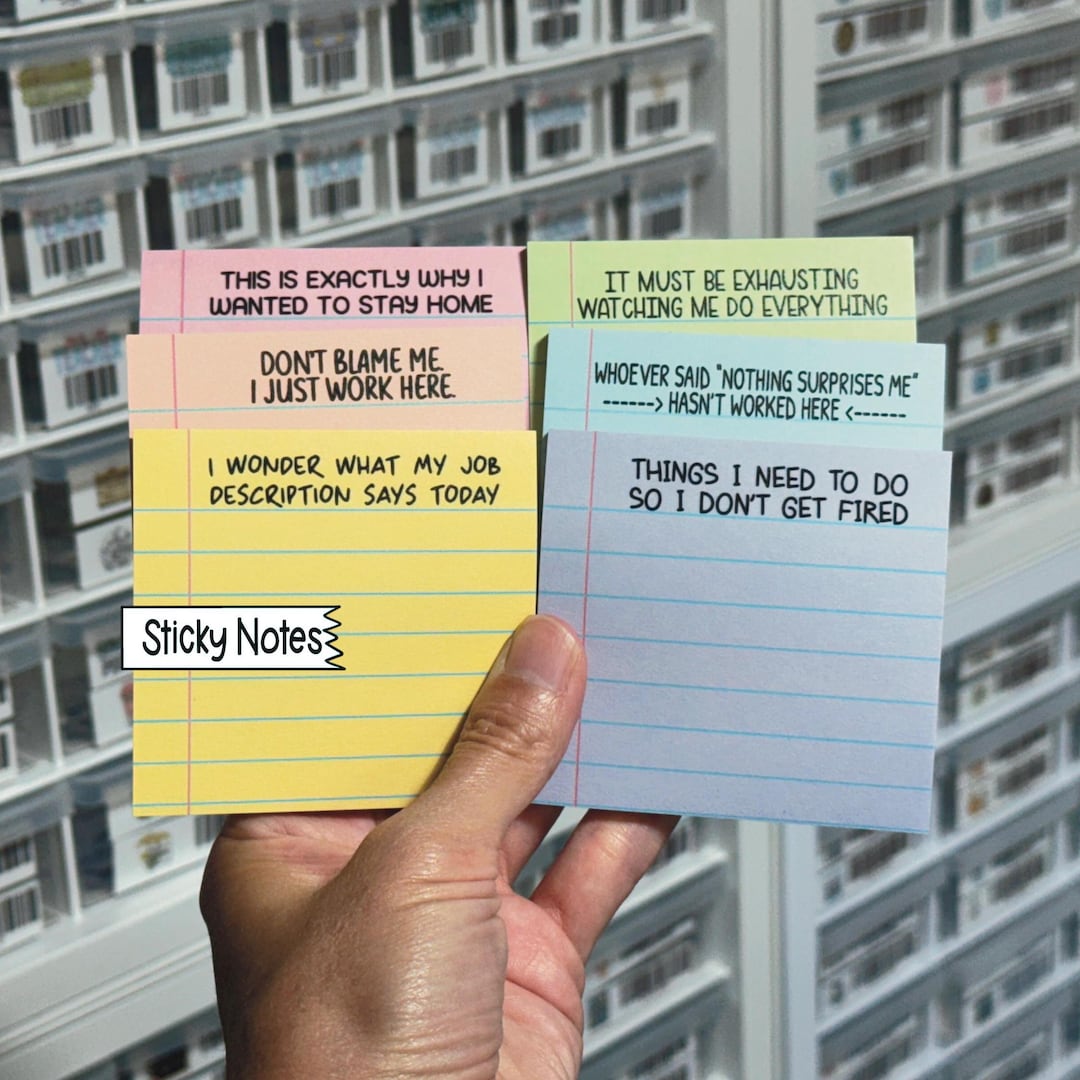 THIS IS EXACTLY WHY I
WANTED TO STAY HOME
IT MUST BE EXHAUSTING
WATCHING ME DO EVERYTHING
DON'T BLAME ME.
I JUST WORK HERE.
WHOEVER SAID "NOTHING SURPRISES ME"
------> HASN'T WORKED HERE <------
I WONDER WHAT MY JOB
DESCRIPTION SAYS TODAY
THINGS I NEED TO DO
SO I DON'T GET FIRED
Sticky Notes